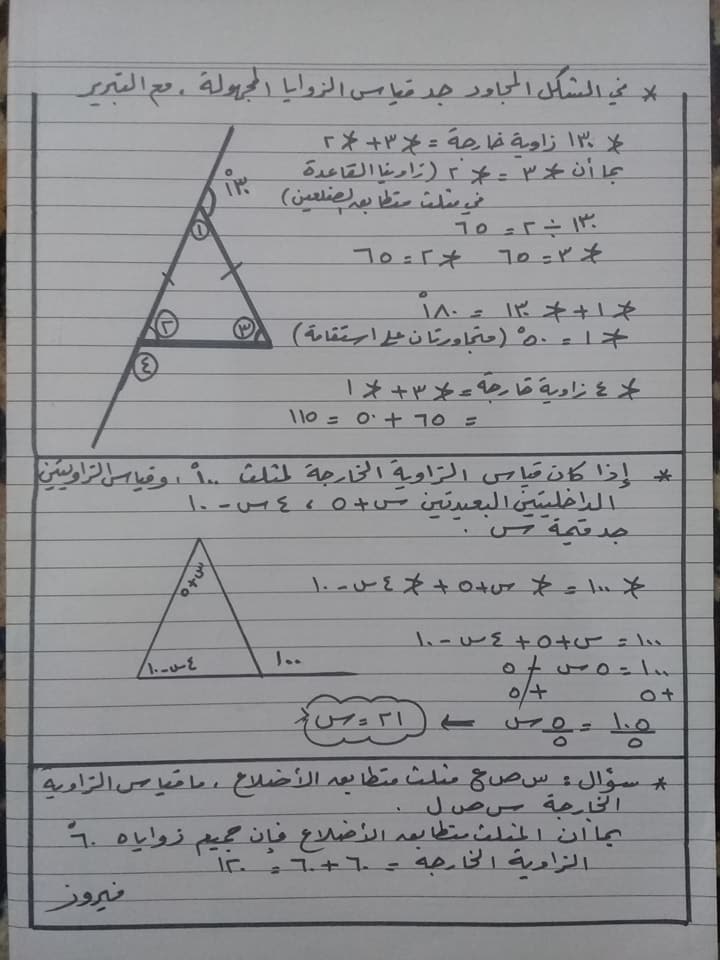 * في الشكل المجاور جد قياس الزوايا المجهولة . مع التبرير
∢ ١٣٠ زاوية خارجة = ∢٣ + ∢٢
بما أن ∢٣ = ∢٢ (زاويتا القاعدة
في مثلث متطابق الضلعين)
١٣٠ ÷ ٢ = ٦٥
∢٣ = ٦٥ ∢٢ = ٦٥
∢١ + ∢١٣٠ = ١٨٠°
∢١ = ٥٠° (متجاورتان على استقامة)
∢٤ زاوية خارجة = ∢٣ + ∢١
= ٦٥ + ٥٠ = ١١٥
١٣٠°
١
٢
٣
٤
* إذا كان قياس الزاوية الخارجة لمثلث ١٠٠° ، وقياس الزاويتين
الداخليتين البعيدتين س+٥ ، ٤س-١٠
جد قيمة س .
∢ ١٠٠ = ∢ س+٥ + ∢ ٤س-١٠
١٠٠ = س+٥+٤س-١٠
١٠٠ = ٥س - ٥
+٥ +٥
١٠٥/٥ = ٥س/٥ ← ٢١ = س
س+٥
٤س-١٠
١٠٠
* سؤال : س ص ع مثلث متطابق الأضلاع ، ما قياس الزاوية
الخارجة س ص ل .
بما أن المثلث متطابق الأضلاع فإن جميع زواياه ٦٠°
الزاوية الخارجة = ٦٠ + ٦٠ = ١٢٠
فيروز